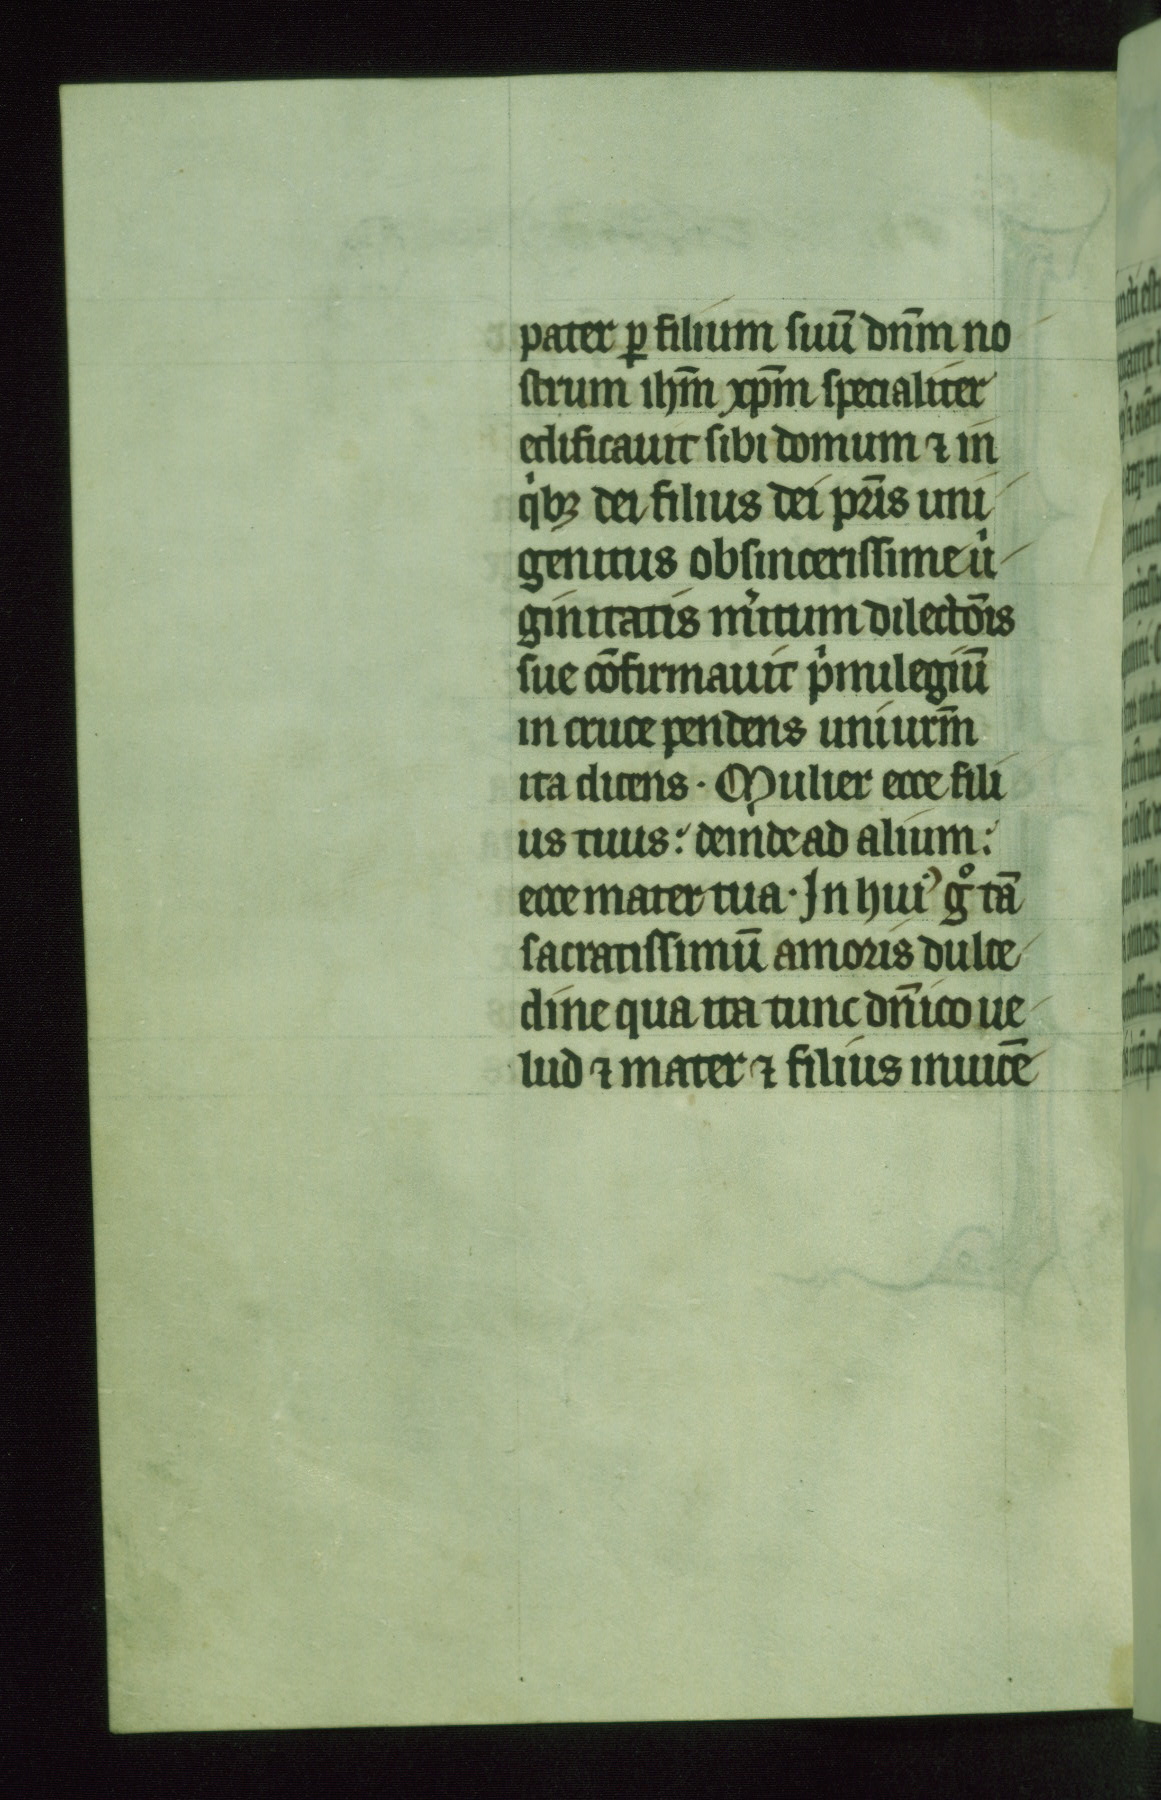 pater ꝑ filium suū dn̄m no
strum ihm̄ xp̄m specialiter
edificauit sibi domum ⁊ in
qͥbꝫ dei filius dei pr̄is uni
genitus ob sincerissime uͥ
ginitatis mͥitum dilectōis
sue cōfirmauit pͥuilegiū
in cruce pendens uni urm̄
ita dicens · Mulier ecce fili
us tuus : deinde ad alium :
ecce mater tua · In huiꝰ gͦ tā
sacratissimū amoris dulce
dine qua ita tunc dn̄ico ue
lud ⁊ mater ⁊ filius inuicē